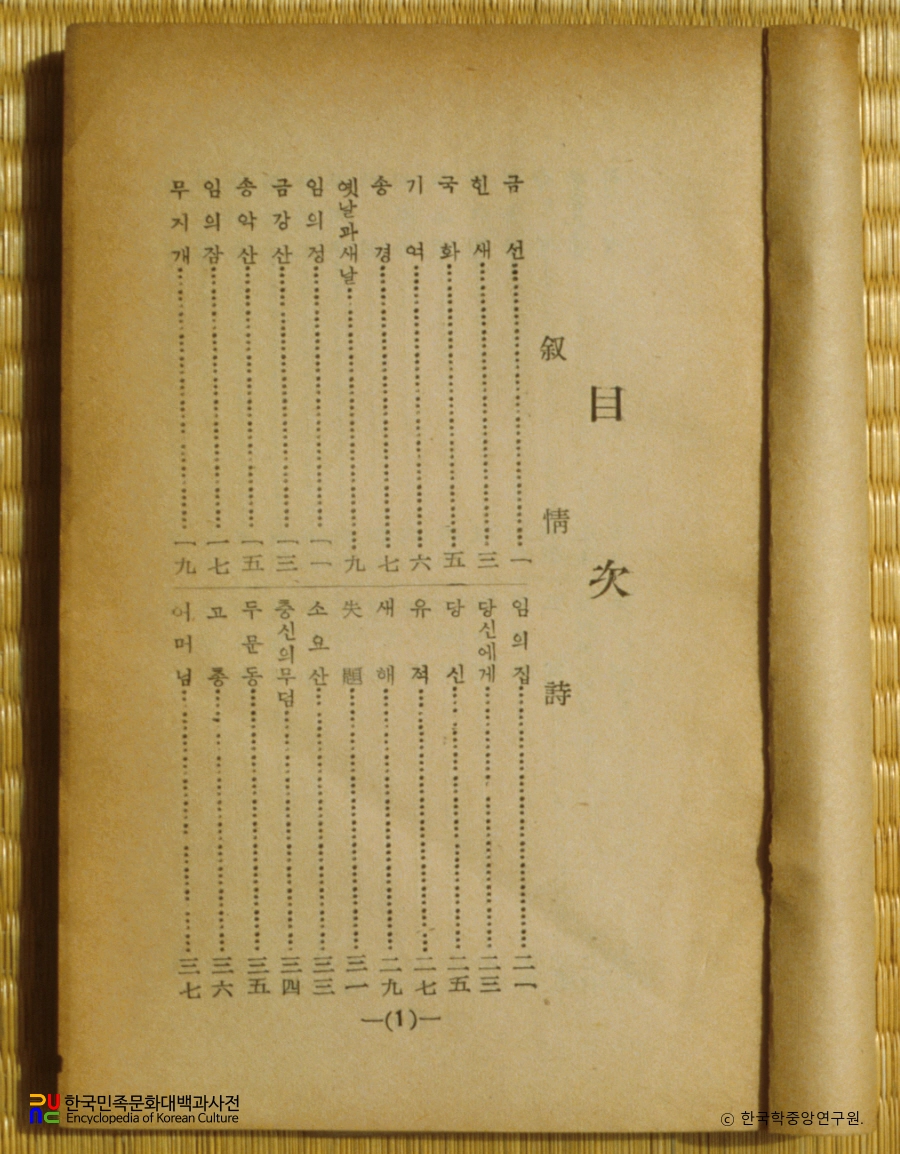 目次
叙情詩
금선……一
힌새……三
국화……五
기여……六
송경……七
옛날과새날……九
임의정……一一
금강산……一三
송악산……一五
임의잠……一七
무지개……一九
임의집……二一
당신에게……二三
당신……二五
유적……二七
새해……二九
失題……三一
소요산……三三
충신의무덤……三四
두문동……三五
고종……三六
어머님……三七
—(1)—
한국민족문화대백과사전
Encyclopedia of Korean Culture
© 한국학중앙연구원.